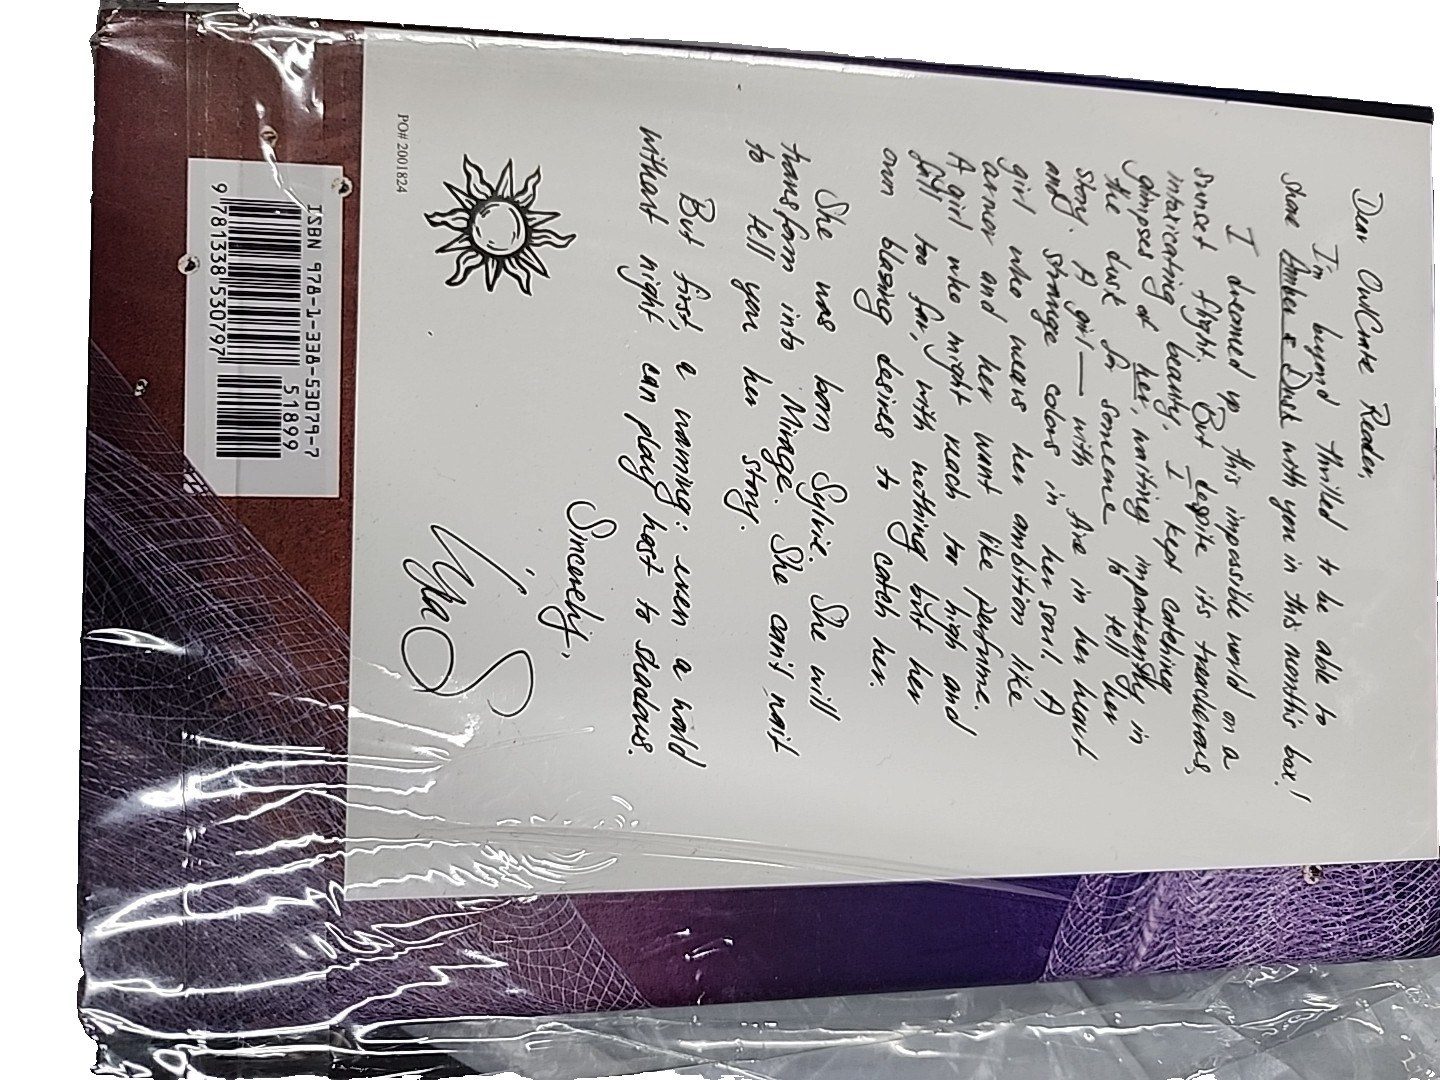 Dear OwlCrate Reader,
I'm beyond thrilled to be able to
share Amber & Dusk with you in this month's box!
I dreamed up this impossible world on a
sunset flight. But despite its treacherous,
intoxicating beauty, I kept catching
glimpses of her, waiting impatiently in
the dusk for someone to tell her
story. A girl—with fire in her heart
and strange colors in her soul. A
girl who wears her ambition like
armor and her want like perfume.
A girl who might reach too high and
fall too far, with nothing but her
own blazing desires to catch her.
She was born Sylvie. She will
transform into Mirage. She can't wait
to tell you her story.
But first, a warning: even a world
without night can play host to shadows.
Sincerely,
Lyra S
PO# 2001824
ISBN 978-1-338-53079-7
51899
9 781338 530797